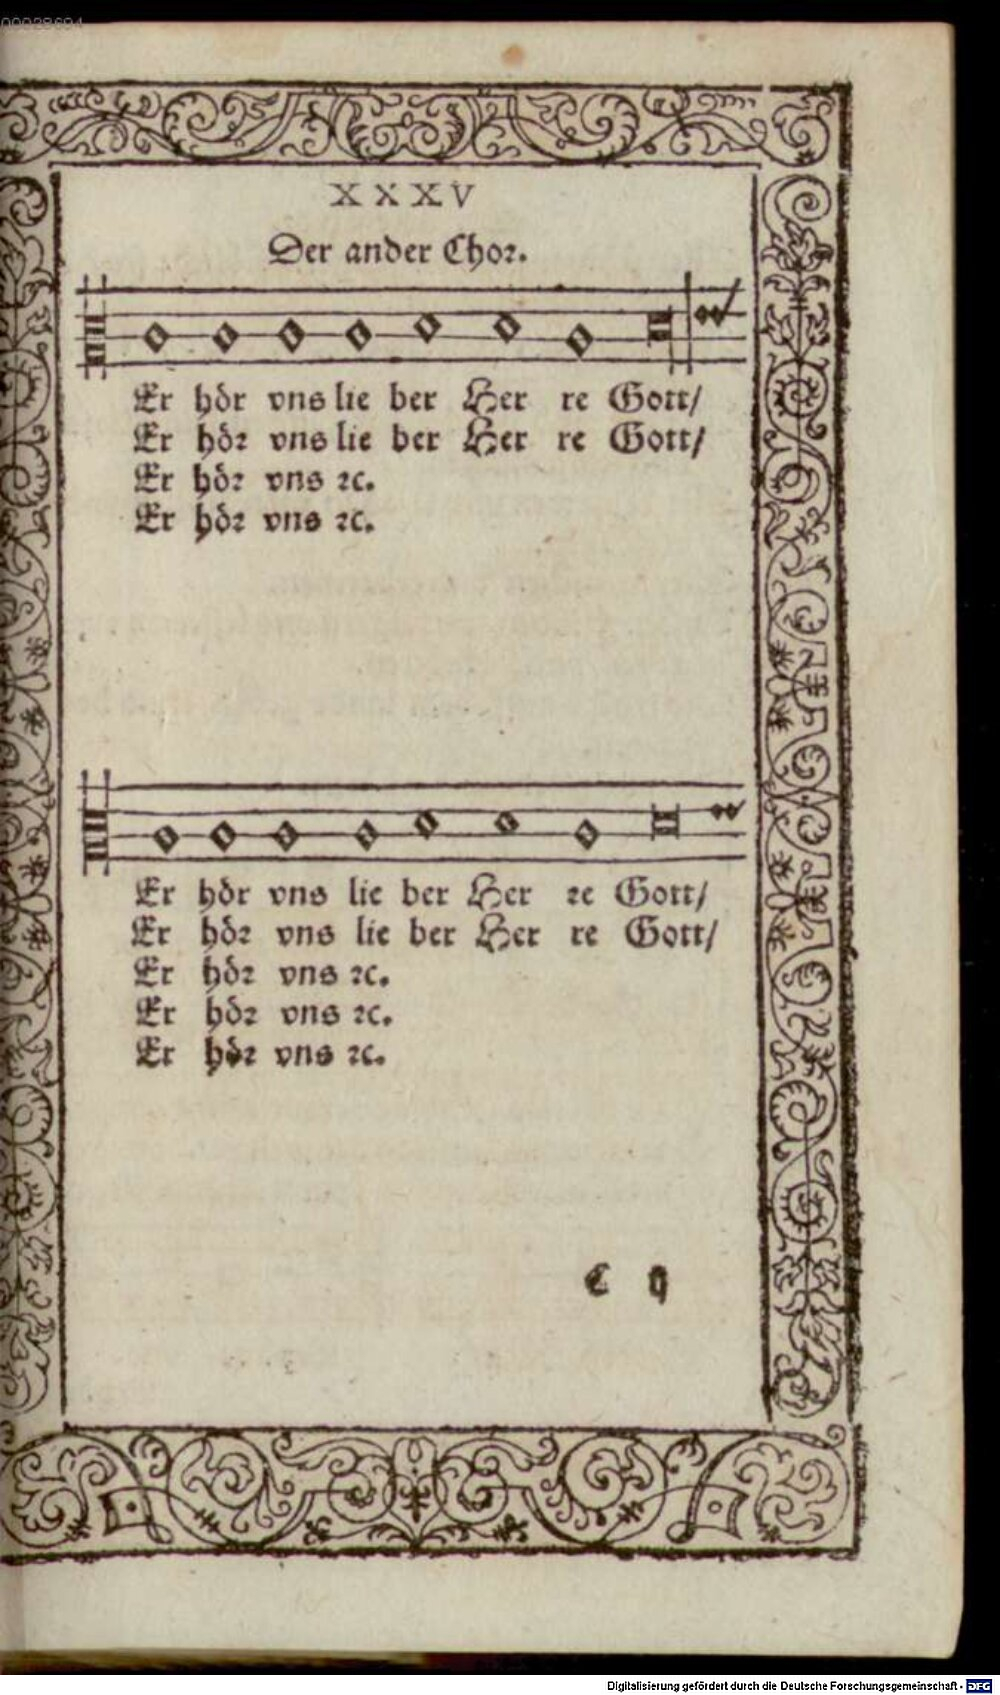 00028694
XXXV
Der ander Chor.
Er hör vns lie ber Her re Gott/
Er hör vns lie ber Her re Gott/
Er hör vns ꝛc.
Er hör vns ꝛc.
Er hör vns lie ber Her re Gott/
Er hör vns lie ber Her re Gott/
Er hör vns ꝛc.
Er hör vns ꝛc.
Er hör vns ꝛc.
Digitalisierung gefördert durch die Deutsche Forschungsgemeinschaft - DFG